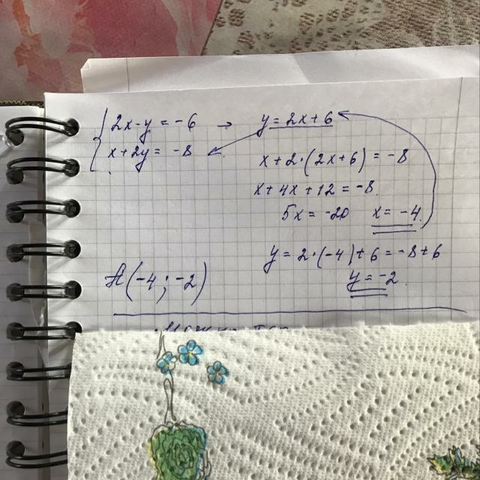 { 2x-y = -6 → y = 2x+6
x+2y = -8
x+2·(2x+6) = -8
x+4x+12 = -8
5x = -20 x = -4
y = 2·(-4)+6 = -8+6
y = -2
A(-4; -2)